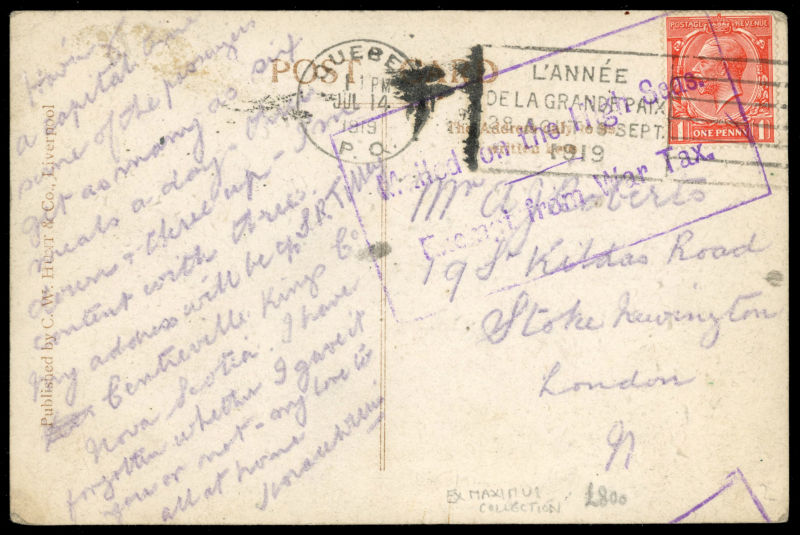 Having
a capital time
some of the passengers
get as many as six
meals a day. Three
down & three up - I'm
content with three.
My address will be
Centreville Kings Co
Nova Scotia. I have
forgotten whether I gave it
you or not - my love to
all at home
Published by C. W. Hunt & Co., Liverpool
POST CARD
QUEBEC
1 PM
JUL 14
1919
P.Q.
L'ANNÉE
DE LA GRANDE PAIX
SEPT.
1919
POSTAGE REVENUE
ONE PENNY
Mailed on the High Seas.
Exempt from War Tax.
The Address
Mr A J Roberts
19 St Kildas Road
Stoke Newington
London
N
EX MAXIMUS
COLLECTION
£800